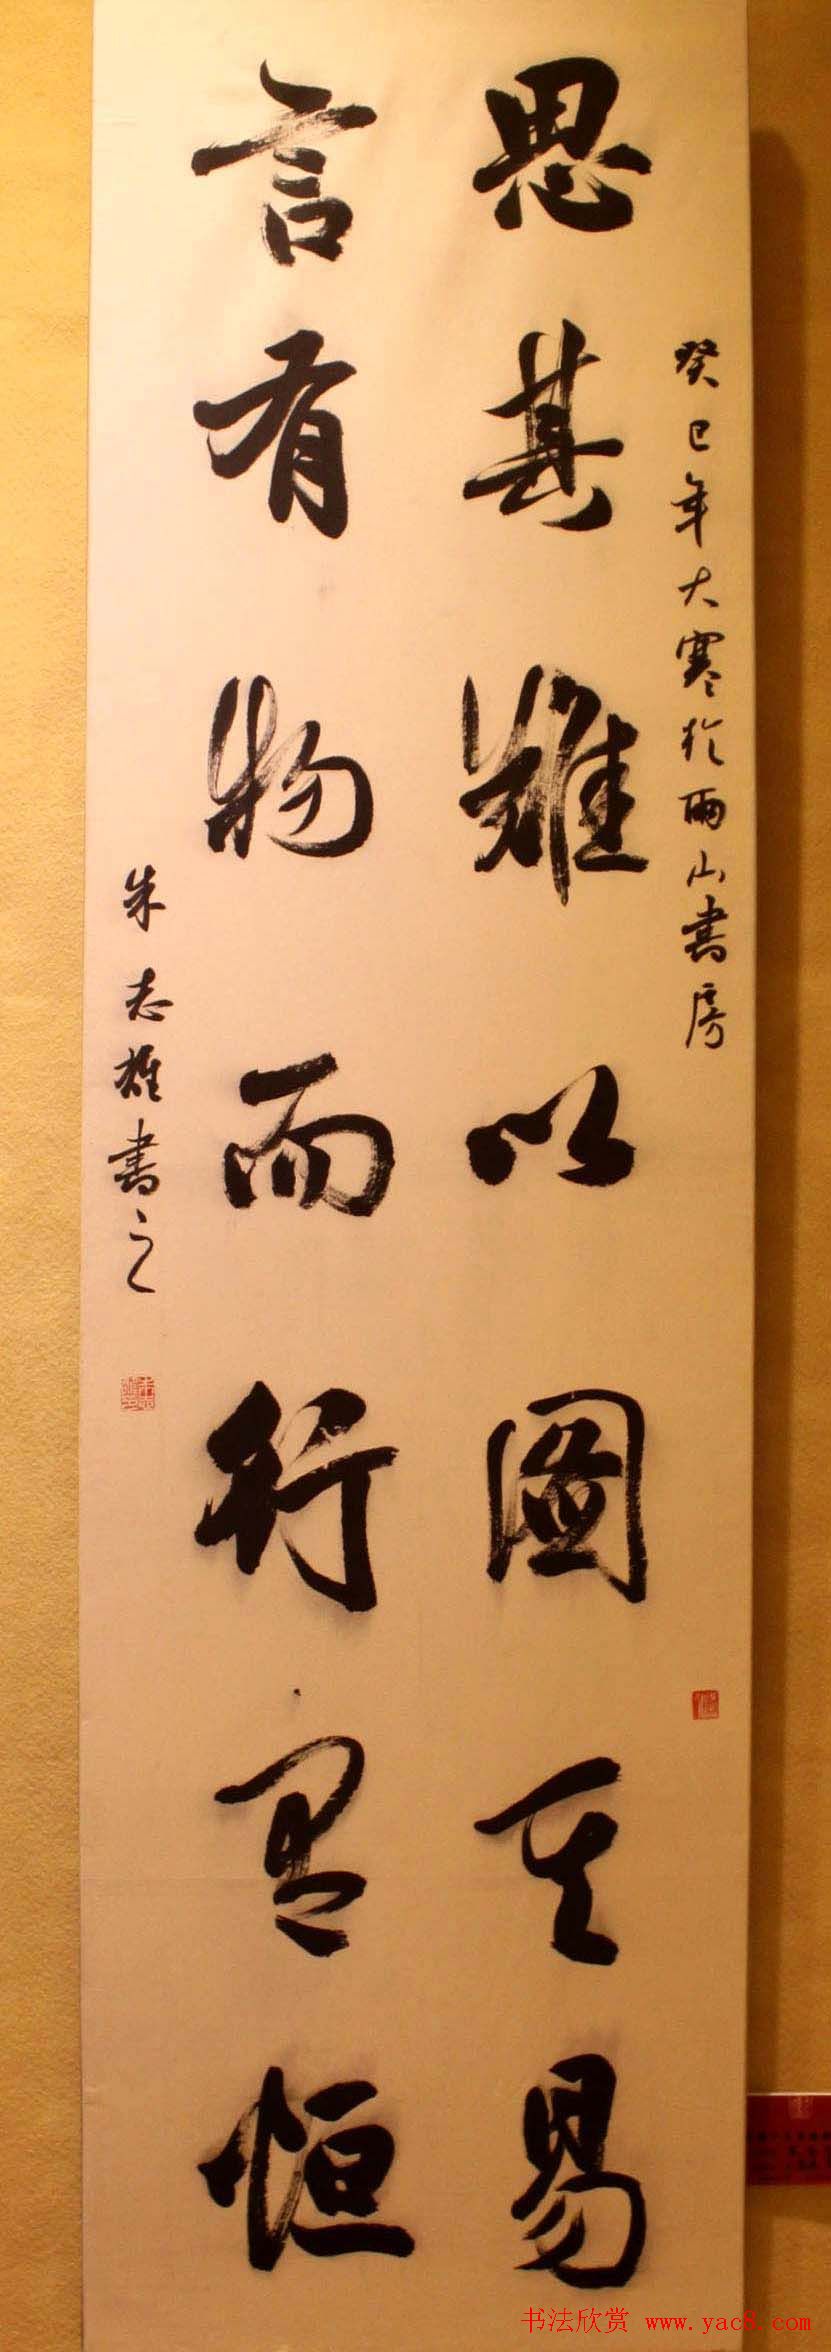 癸巳年大寒於雨山書房
思其難以圖其易
言有物而行有恒
朱志雄書之
书法欣赏 www.yac8.com